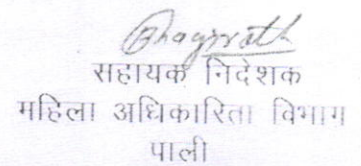 Bhagirath
सहायक निदेशक
महिला अधिकारिता विभाग
पाली